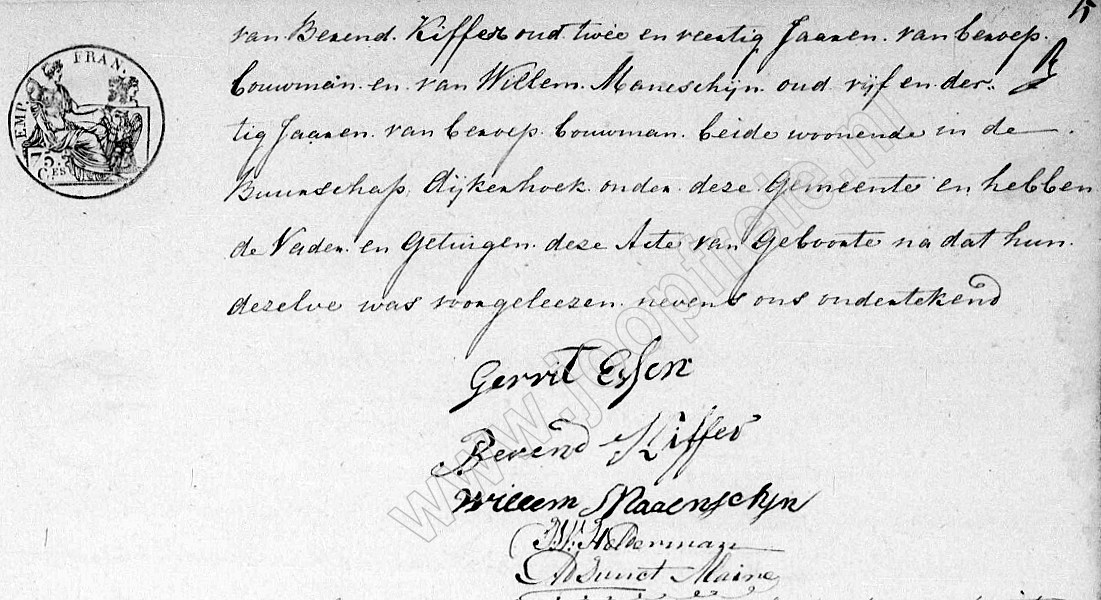 15
van Berend. Kiffer oud twee en veertig Jaaren. van beroep.
bouwman. en. van Willem. Maneschijn. oud vijf en der..
tig Jaaren. van beroep. bouwman. beide woonende in de
Buurschap, Dijkerhoek onder. deze Gemeente en hebben
de Vader. en Getuigen. deze Acte van Geboorte na dat hun.
dezelve was voorgeleezen. nevens ons ondertekend
Gerrit Essen
Berend Kiffer
Willem Maaenschyn
Holderman
Adjunct Maire
EMP. FRAN.
75.
C.ES
www.jooptreic.nl